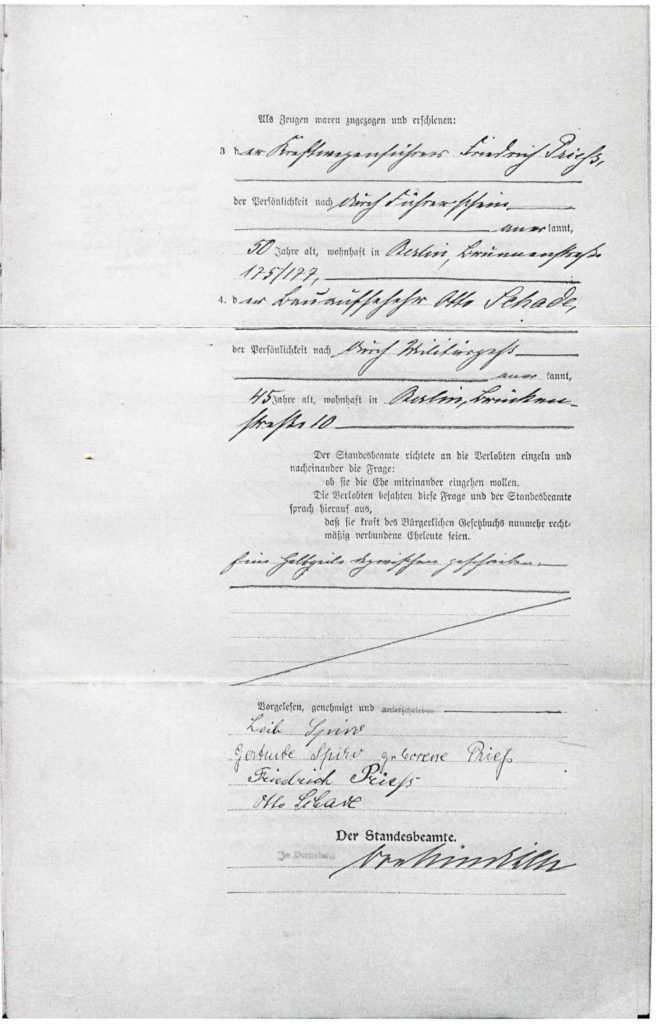 Als Zeugen waren zugezogen und erschienen:
3. der Kraftwagenführer Friedrich Prieß,
der Persönlichkeit nach durch Führerschein
anerkannt,
50 Jahre alt, wohnhaft in Berlin, Brunnenstraße
175/177,
4. der Bauaufseher Otto Schade,
der Persönlichkeit nach durch Militärpaß
anerkannt,
45 Jahre alt, wohnhaft in Berlin, Brücken-
straße 10
Der Standesbeamte richtete an die Verlobten einzeln und
nacheinander die Frage:
ob sie die Ehe miteinander eingehen wollen.
Die Verlobten bejahten diese Frage und der Standesbeamte
sprach hierauf aus,
daß sie kraft des Bürgerlichen Gesetzbuchs nunmehr recht-
mäßig verbundene Eheleute seien.
Eine Halbzeile dazwischen geschrieben.
Vorgelesen, genehmigt und unterschrieben
Leib Spiro
Gertrude Spiro geborene Prieß
Friedrich Prieß
Otto Schade
Der Standesbeamte.
In Vertretung